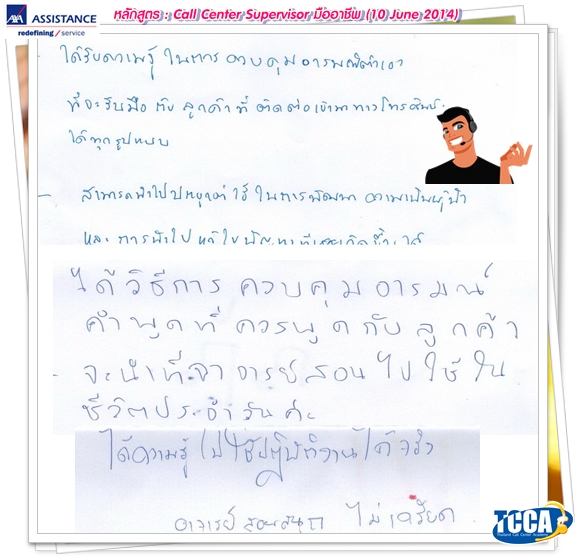 AXA ASSISTANCE
redefining / service
หลักสูตร : Call Center Supervisor มืออาชีพ (10 June 2014)
- ได้รับความรู้ ในการ ควบคุม อารมณ์ตัวเอง
ที่จะรับมือ กับ ลูกค้า ที่ ติดต่อเข้ามา ทางโทรศัพท์
ได้ทุกรูปแบบ
- สามารถนำไปประยุกต์ ใช้ ในการพัฒนา ความเป็นผู้นำ
และ การนำไป แก้ไขปัญหาที่เคยเกิดขึ้น
- ได้วิธีการ ควบคุม อารมณ์
คำพูดที่ ควรพูดกับลูกค้า
- จะนำที่อาจารย์สอนไปใช้ใน
ชีวิตประจำวันค่ะ
ได้ความรู้ ไปใช้ปฏิบัติงานได้จริง
อาจารย์ สอนสนุก ไม่เครียด
TCCA
Thailand Call Center Academy